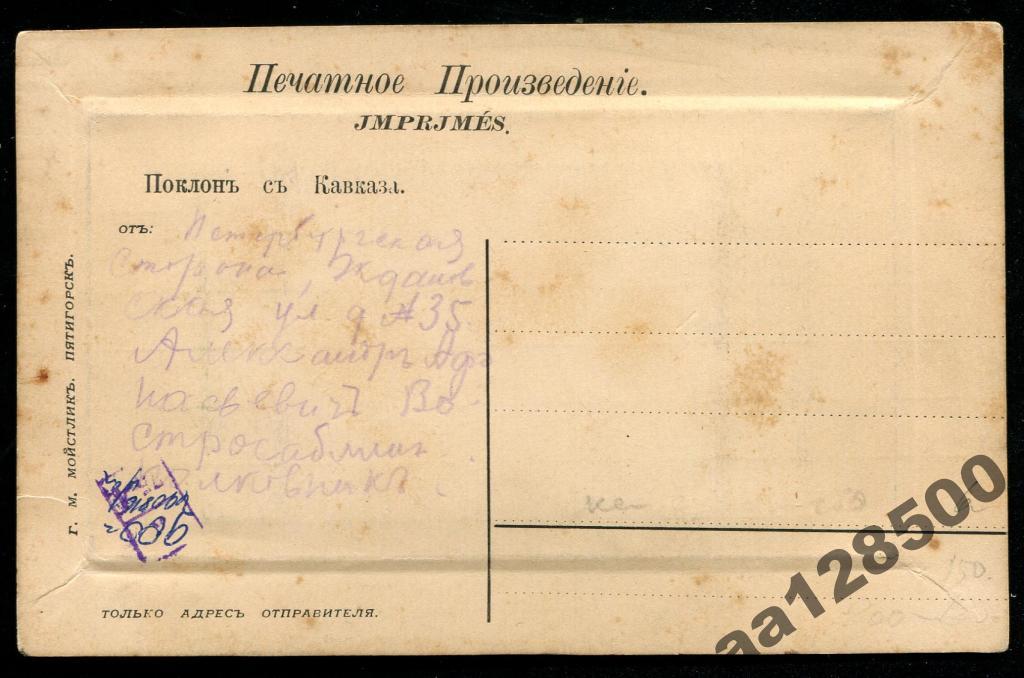 Печатное Произведеніе.
JMPRJMÉS.
Поклонъ съ Кавказа.
отъ:
Петербургская
Сторона, Жданов
ская ул. д №35.
Александръ Афа
насьевичъ Во-
стросаблин
г. м. мойстликъ. пятигорскъ.
только адресъ отправителя.
900
150.
aa128500